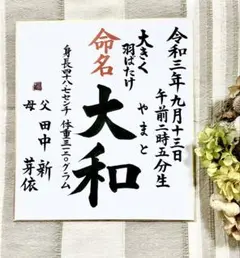 令和三年九月十三日
午前二時五分生
大きく
羽ばたけ
やまと
命名
大和
身長四八・七センチ 体重三一二〇グラム
父 田中 新
母 芽依